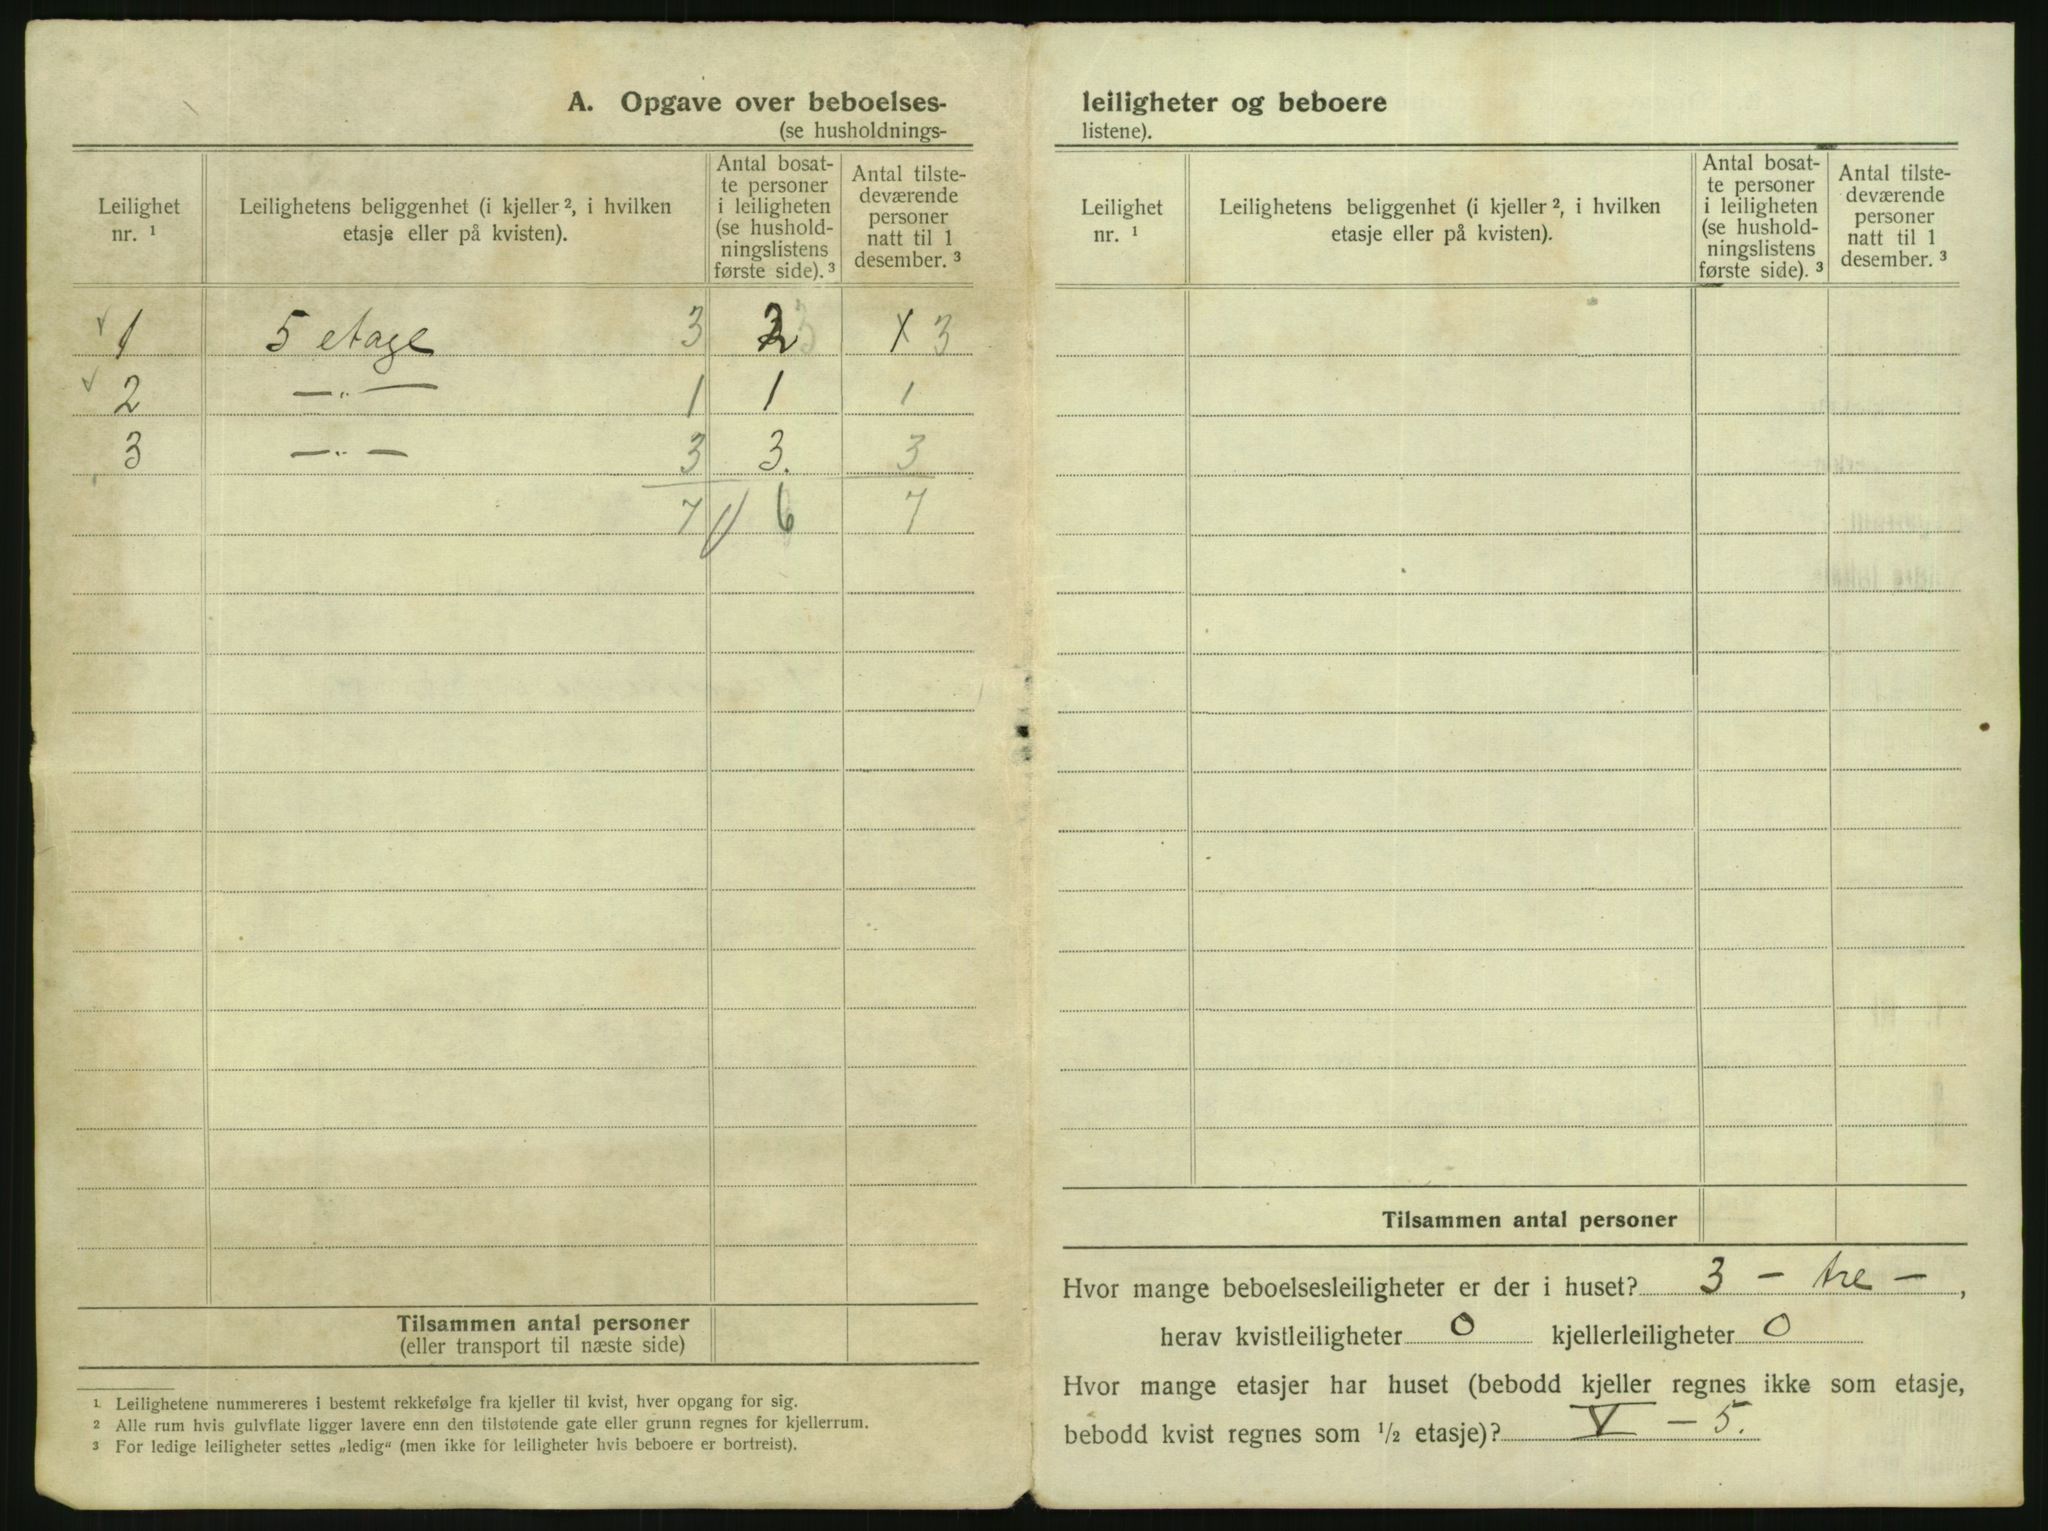 A. Opgave over beboelses-
(se husholdnings-
Leilighet nr. 1
Leilighetens beliggenhet (i kjeller 2, i hvilken etasje eller på kvisten).
Antal bosat-
te personer
i leiligheten
(se hushold-
ningslistens
første side). 3
Antal tilste-
deværende
personer
natt til 1
desember. 3
1 5 etage 3 2 3 x 3
2 —„— 1 1 1
3 —„— 3 3. 3
7 6 7
Tilsammen antal personer
(eller transport til næste side)
1 Leilighetene nummereres i bestemt rekkefølge fra kjeller til kvist, hver opgang for sig.
2 Alle rum hvis gulvflate ligger lavere enn den tilstøtende gate eller grunn regnes for kjellerrum.
3 For ledige leiligheter settes „ledig" (men ikke for leiligheter hvis beboere er bortreist).
leiligheter og beboere
listene).
Leilighet nr. 1
Leilighetens beliggenhet (i kjeller 2, i hvilken etasje eller på kvisten).
Antal bosat-
te personer
i leiligheten
(se hushold-
ningslistens
første side). 3
Antal tilste-
deværende
personer
natt til 1
desember. 3
Tilsammen antal personer
Hvor mange beboelsesleiligheter er der i huset? 3 — tre — ,
herav kvistleiligheter 0 kjellerleiligheter 0
Hvor mange etasjer har huset (bebodd kjeller regnes ikke som etasje,
bebodd kvist regnes som 1/2 etasje)? V — 5.